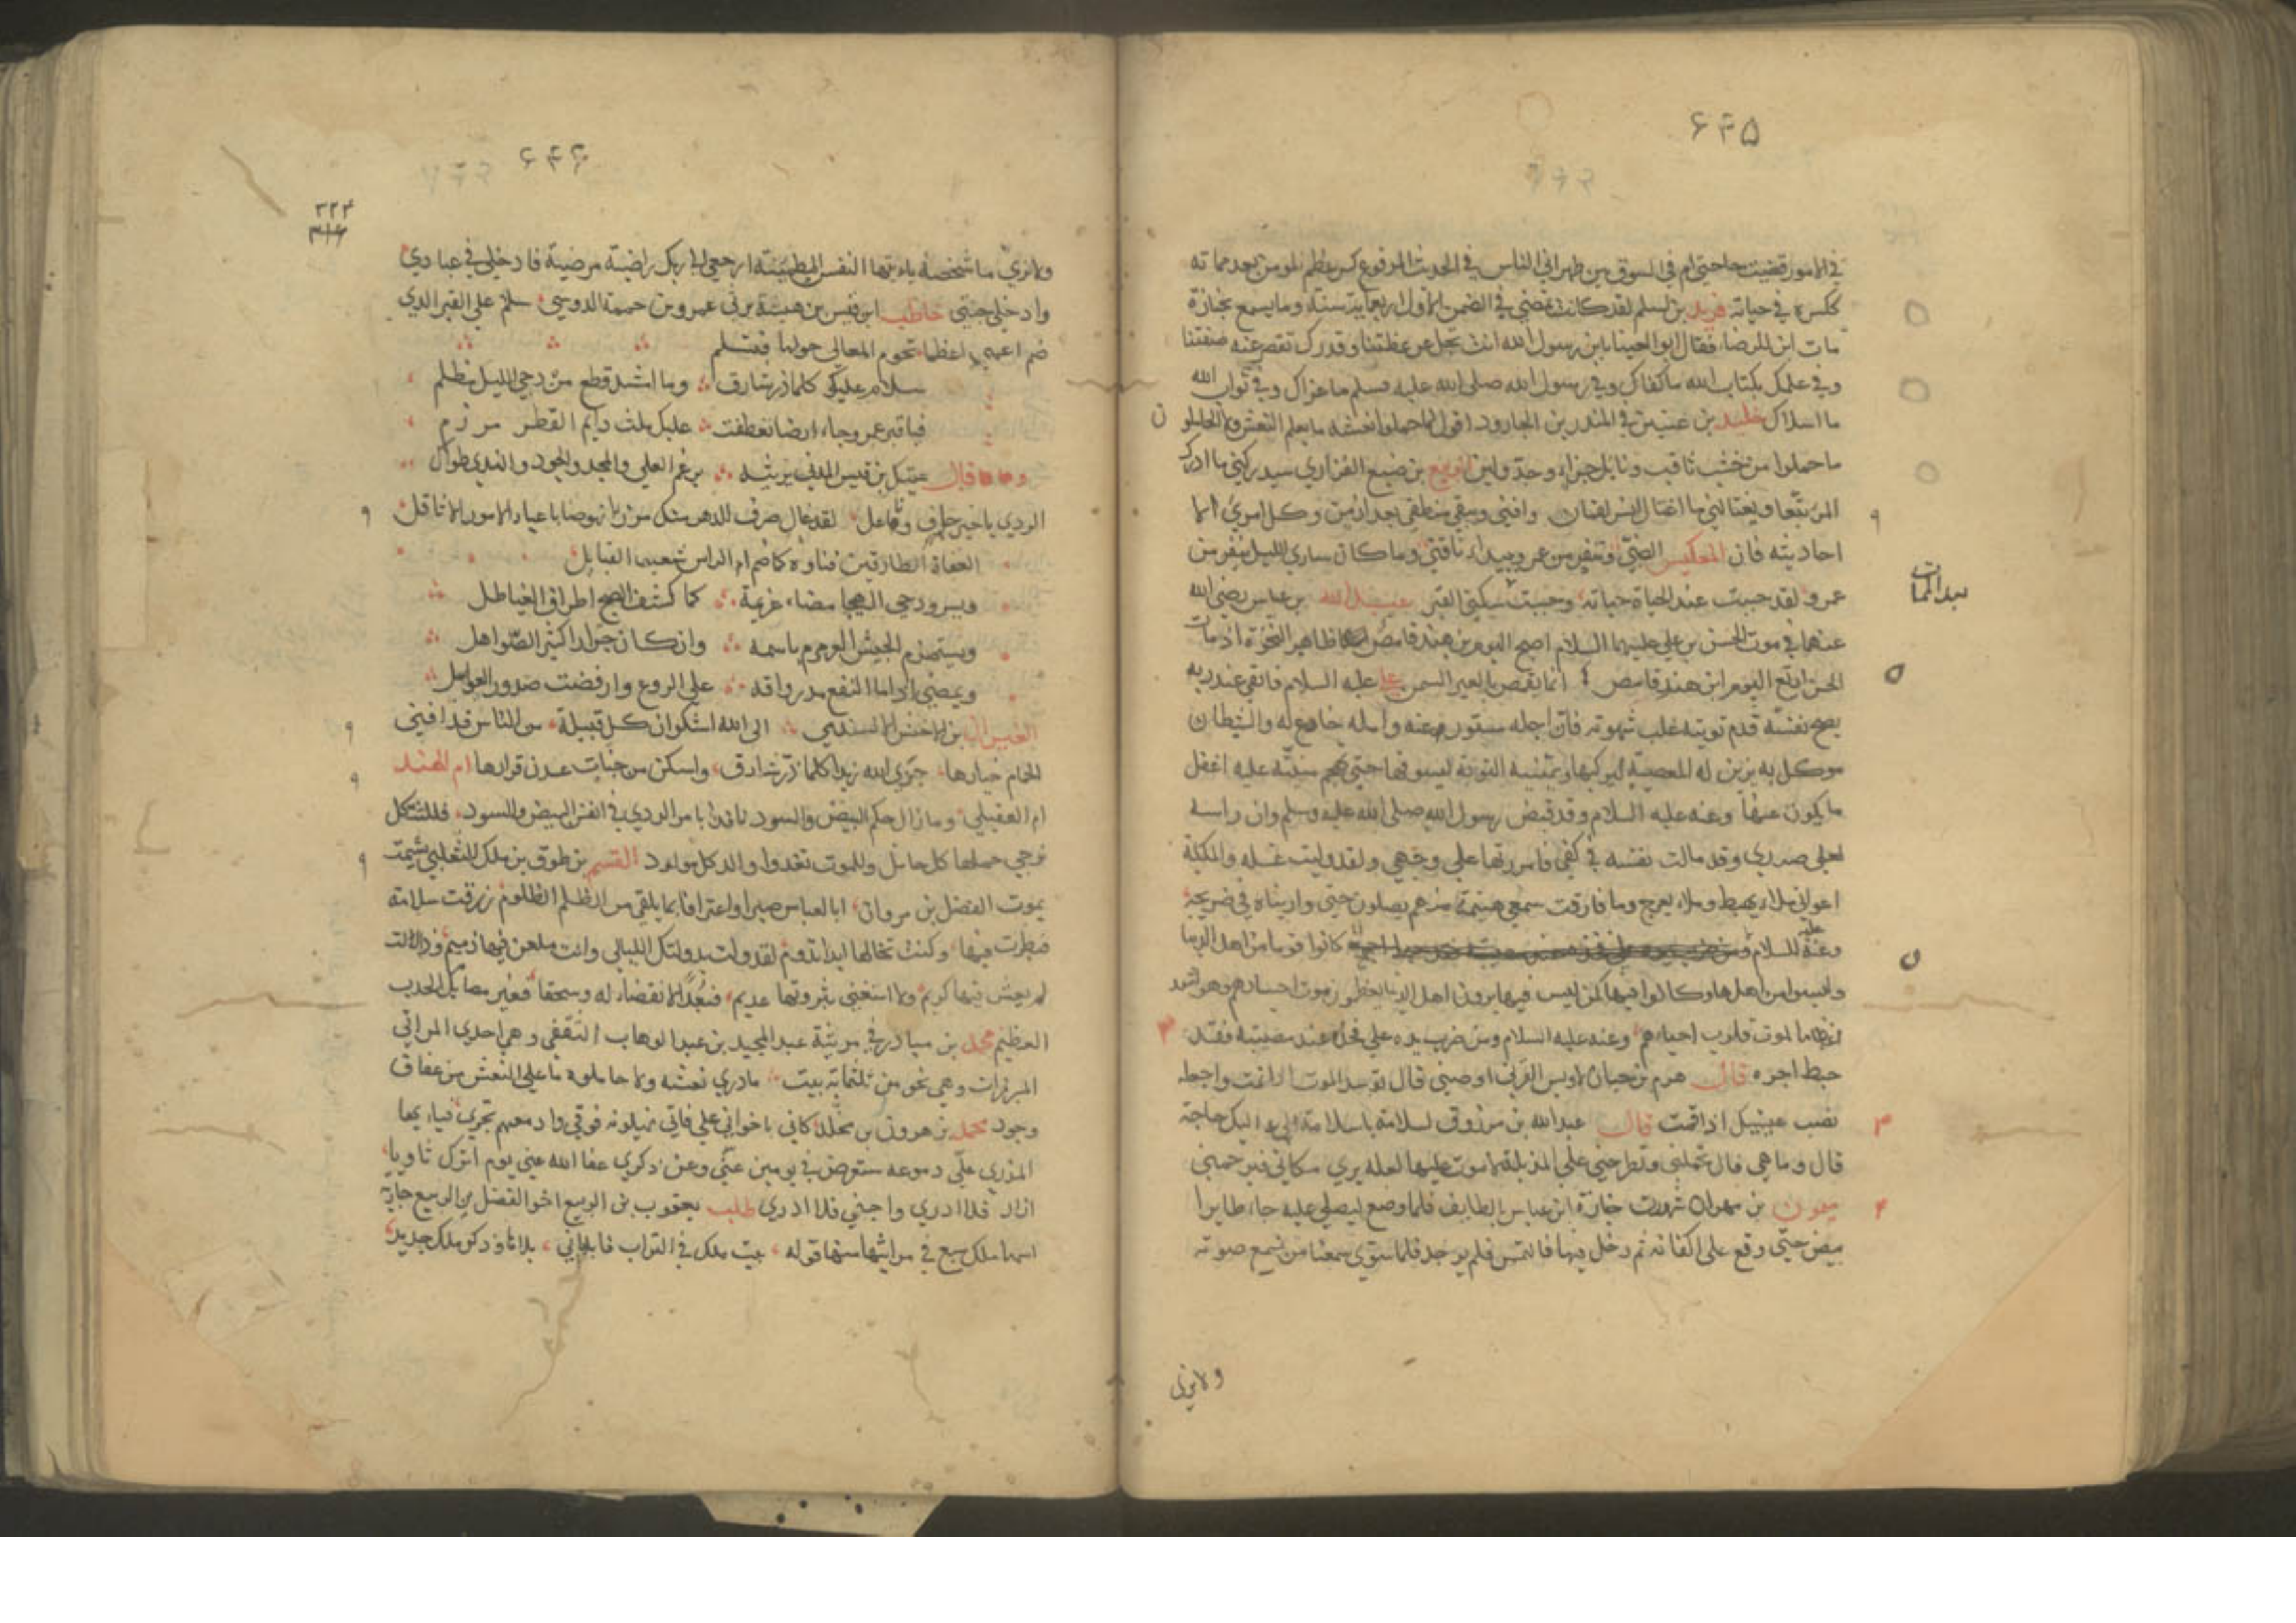 ۶۴۵
في الامور قضيت حاجتي ام في السوق بين ظهراني الناس في الحديث المرفوع كسر عظم المومن بعد مماته
ككسره في حياته بن لسلم لقد كانت تمضي في الضمن الاول اربعمايه سنة وما يسمع بجنازة
مات ابن للرضا فقال ابو العينا يابن رسول الله انت تجل عن عظتنا وقدرك تقصر عنه صفتنا
وفي علمك بكتاب الله ما كفاك وفي رسول الله صلى الله عليه وسلم ما عزاك وفي ثواب الله
ما اسلاك خليد بن عينين في المنذر بن الجارود اقول لما حملوا نعشه ما يعلم النعش ولا الحاملو ن
ما حملوا من حسب ثاقب ونايل جزل وحد ولين الربيع بن ضبع الفزاري سيدركني ما ادرك
المرء تبعا ويغتالني ما اغتال انسر لقمان وافنى ويبقى منطقي بعد ازمن وكل امرئ الا
احاديثه فان المعكيس الضبي وتنفر من عمرو ببيداء ناقتي وما كان ساري الليل ينفر من
عمرو لقد حببت عند الحياة حياته وحببت سكنى القبر عبد الله بن عباس رضي الله
عنهما في موت الحسن بن علي عليهما السلام اصبح اليوم بن هند ظاهر النخوة اذ مات
الحسن السمن علي عليه السلام فاتقى عند ربه
نصح نفسه قدم توبته غلب شهوته فان اجله مستور عنه وامله خادع له والشيطان
موكل به يزين له المعصية ليركبها ويمنيه التوبة ليسوفها حتى تهجم منيته عليه اغفل
ما يكون عنها وعنه عليه السلام وقد قبض رسول الله صلى الله عليه وسلم وان راسه
لعلى صدري وقد سالت نفسه في كفي فامررتها على وجهي ولقد وليت غسله والملايكة
اعواني ملاء يهبط وملاء يعرج وما فارقت سمعي هينمة منهم يصلون حتى واريناه في ضريحه
وعنه عليه السلام كانوا قوما من اهل الدنيا
وليسوا من اهلها وكانوا فيها كمن ليس فيها يرون اهل الدنيا يعظمون موت اجسادهم وهم اشد
اعظاما لموت قلوب احياءهم وعنه عليه السلام ومن ضرب يده على فخذه عند مصيبته فقد
حبط اجره قال هرم بن حيان لاويس القرني اوصني قال توسد الموت اذا نمت واجعله
نصب عينيك اذا قمت قال عبد الله بن مرزوق لسلامة يا سلامة ان لي اليك حاجة
قال وما هي قال تحملني وتطرحني على المزبلة لاموت عليها لعله يرى مكاني فيرحمني
ميمون بن مهران شهدت جنازة ابن عباس بالطايف فلما وضع ليصلي عليه جاء طاير ا
بيض حتى وقع على اكفانه ثم دخل فيها فالتمس فلم يوجد فلما سوي سمعنا من نسمع صوته
ولا نرى
۶۴۶
٣٢٣
ولا نرى ما شخصه يا ايتها النفس المطمئنة ارجعي الى ربك راضية مرضية فادخلي في عبادي
وادخلي جنتي خاطب ابن قيس بن هيشة يرثي عمرو بن حممة الدوسي سلام على القبر الذي
ضم اعظما تحوم المعالي حولها فتسلم
سلام عليك كلما ذر شارق وما امتد قطع من دجى الليل مظلم
فيا قبر عمرو جاد ارضا تعطفت عليك ملث دايم القطر مرزم
قال عتيك بن قيس المدني يرثيه برغم العلى والمجد والجود والندى طواك
الردى يا خير حاف وناعل لقد غال صرف الدهر منك مرزا نهوضا باعباء الامور الاثاقل
العفاة الطارقين فناوه كما ضم ام الراس شعب القبايل
ويسرو دجى الهيجا مضاء عزيمة كما كشف الصبح اطراق الغياطل
ويستهزم الجيش العرمرم باسمه وان كان جرارا كثير الصواهل
ويمضي اذا ما النقع مد رواقه على الروع وارفضت صدور العوامل
بن الاخنس السندسي الى الله اشكو ان كل قبيلة من الناس قد افنى
الحمام خيارها جزى الله زيدا كلما ذر شارق واسكن من جنات عدن قرارها ام الهند
ام العقيلي وما زال حكم البيض والسود نافذا بامر الردى في انفس البيض والسود فللثكل
ترجي حملها كل حامل وللموت تغدوا والد كل مولود القسم بن طوق بن ملك الثعلبي يشمت
بموت الفضل بن مروان ابا العباس صبرا واعترافا بما يلقى من الظلم الظلوم رزقت سلامة
فبطرت فيها وكنت تخالها ابدا تدوم لقد ولت بدولتك الليالي وانت ملعن فيها ذميم وزالت
لم يعش فيها كريم ولا استغنى بثروتها عديم فبعدا لانقضاء له وسحقا فغير مصابك الحدث
العظيم محمد بن مناذر في مرثية عبد المجيد بن عبد الوهاب الثقفي وهي احدى المراثي
المبرزات وهي نحو من ثلثماية بيت ما درى نعشه ولا حاملوه ما على النعش من عفاف
وجود محمد بن هرون بن مخلد كاني باخواني على فاتي يهيلونه فوقي وادمعهم تجري فياء يها
المذري علي دموعه ستعرض في يومين عني وعن ذكري عفا الله عني يوم اترك ثاويا
ازار فلا ادري واجفى فلا ادري طلب يعقوب بن الربيع اخو الفضل بن الربيع جارية
اسمها ملك سبع في مراثيها منها قوله بيت ملك في التراب فابلاني بلاها وذكر ملك جديد